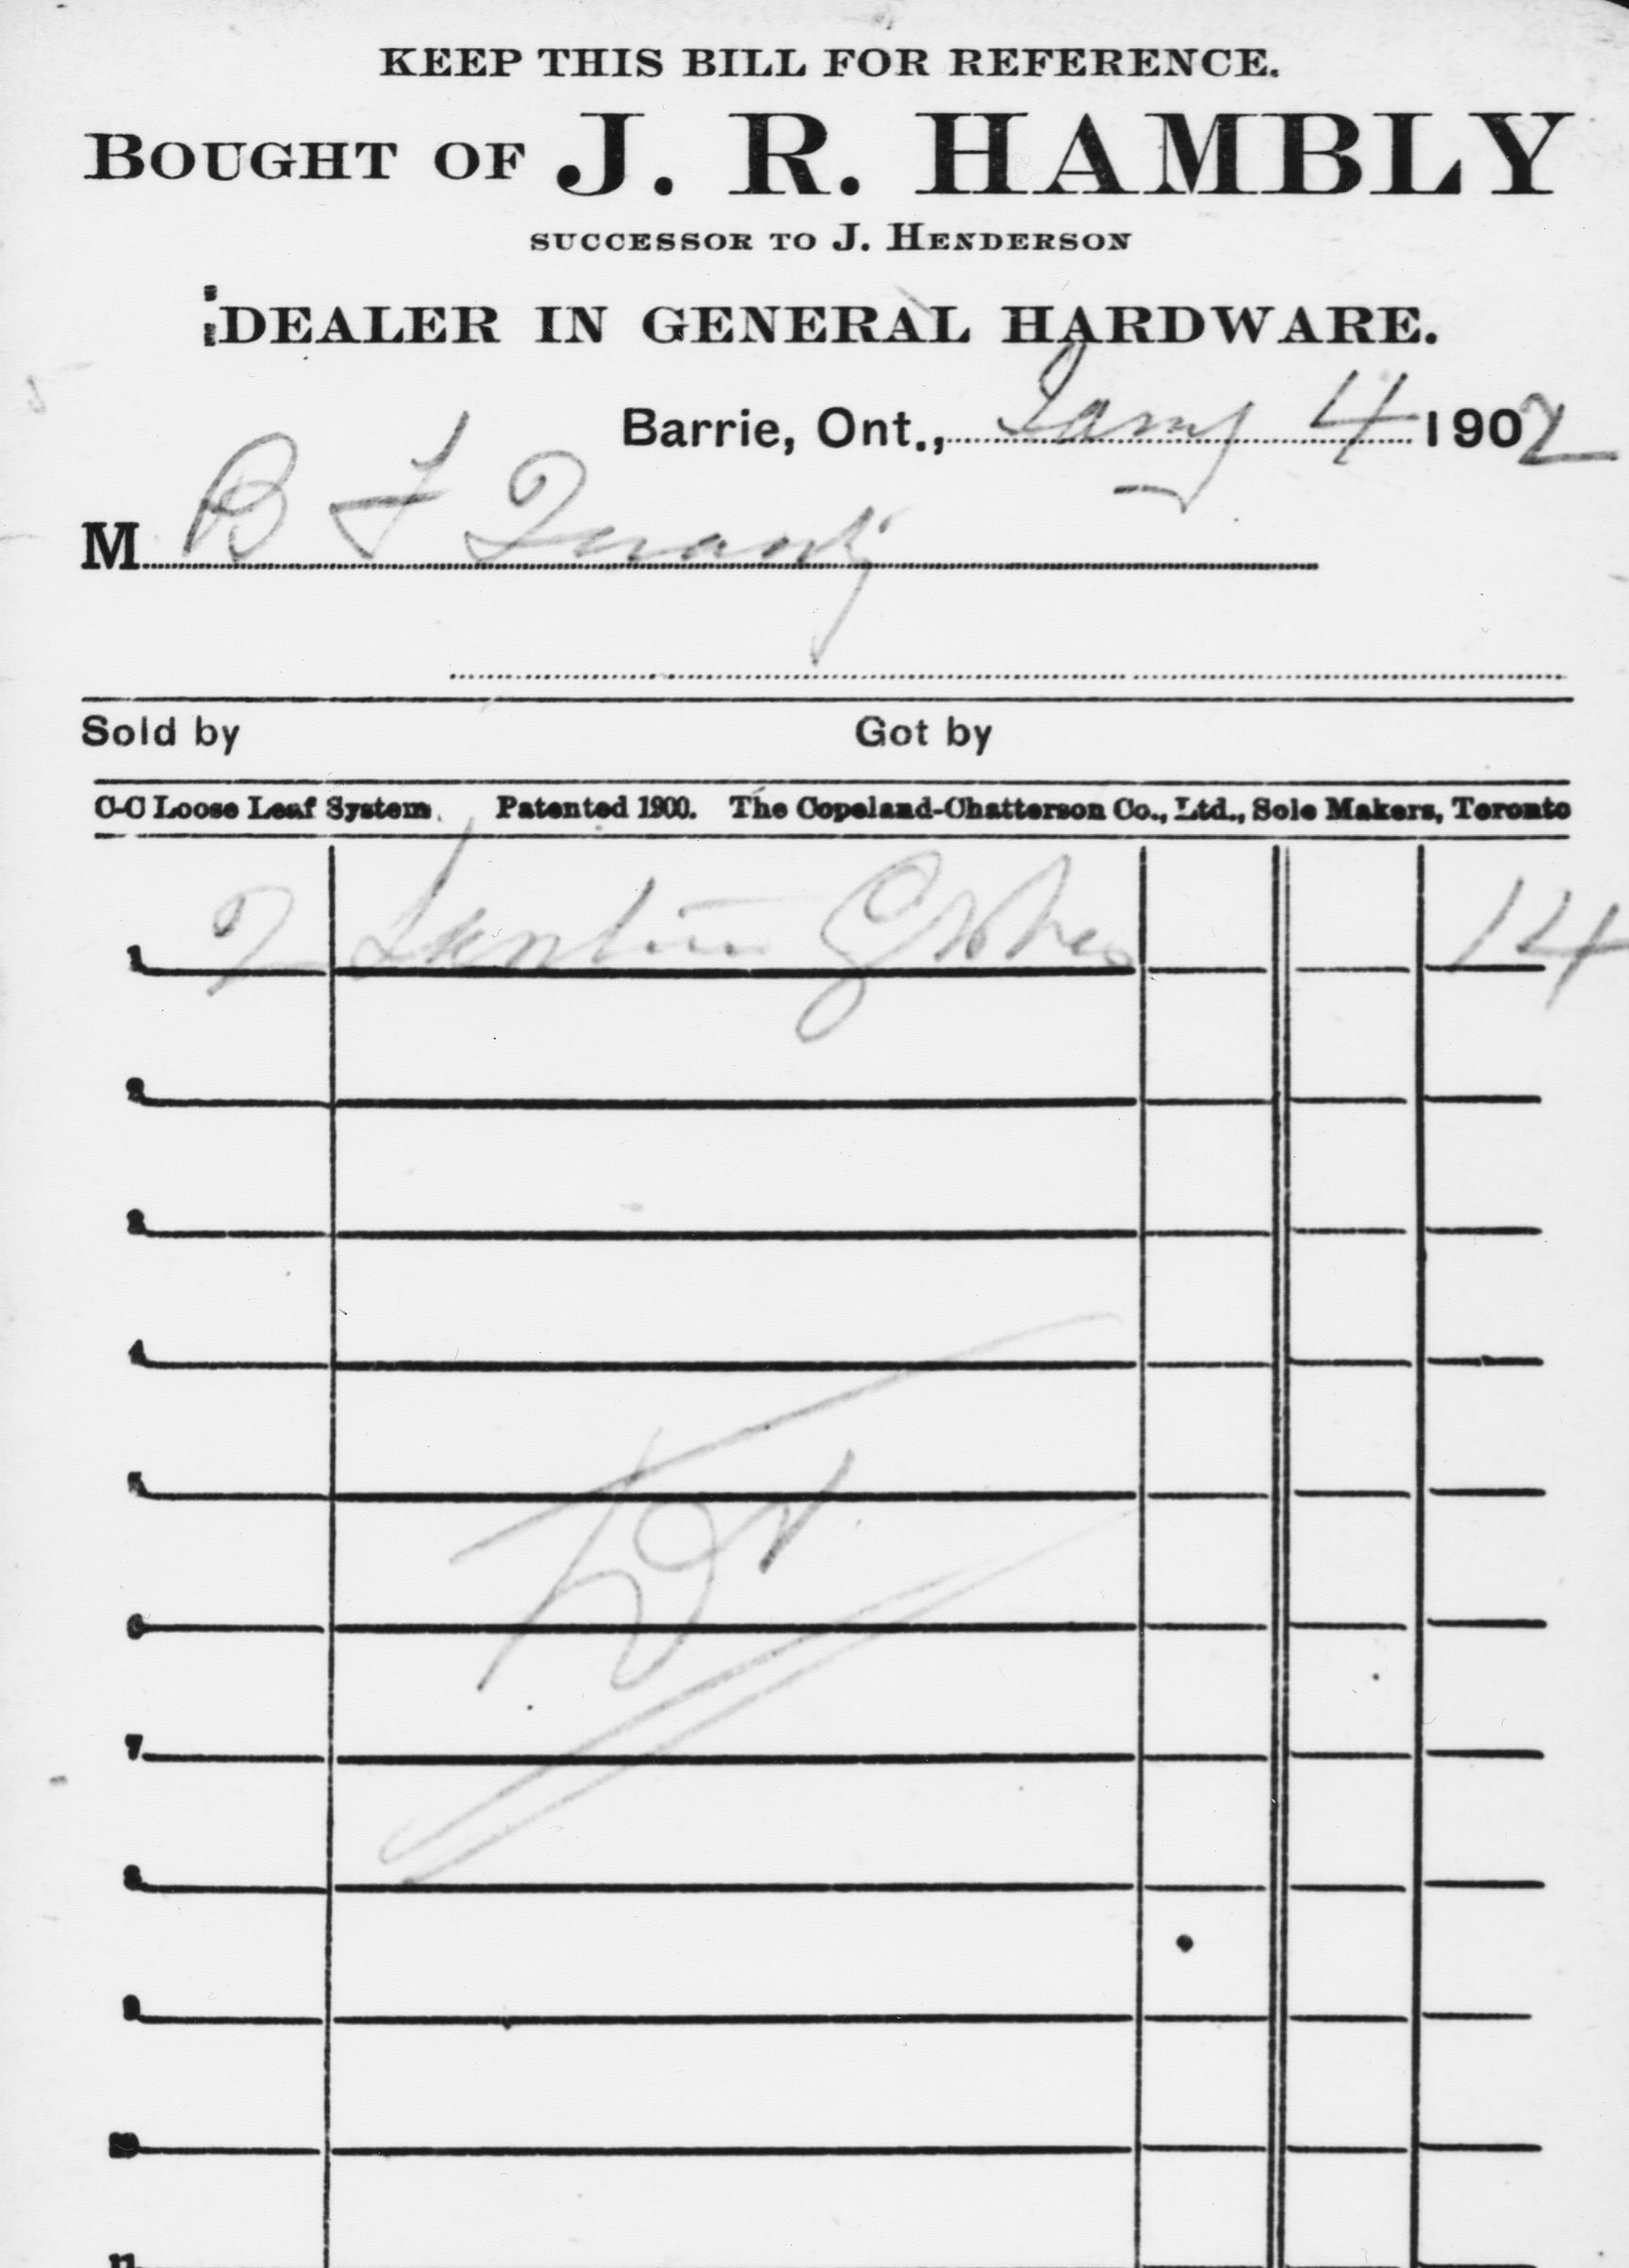 KEEP THIS BILL FOR REFERENCE.
BOUGHT OF J. R. HAMBLY
SUCCESSOR TO J. HENDERSON
DEALER IN GENERAL HARDWARE.
Barrie, Ont., Jany 4 1902
M B F
Sold by Got by
C-C Loose Leaf System. Patented 1900. The Copeland-Chatterson Co., Ltd., Sole Makers, Toronto
1 2 Lantern Globes 14
2
3
4
5
6
7
8
9
10
11